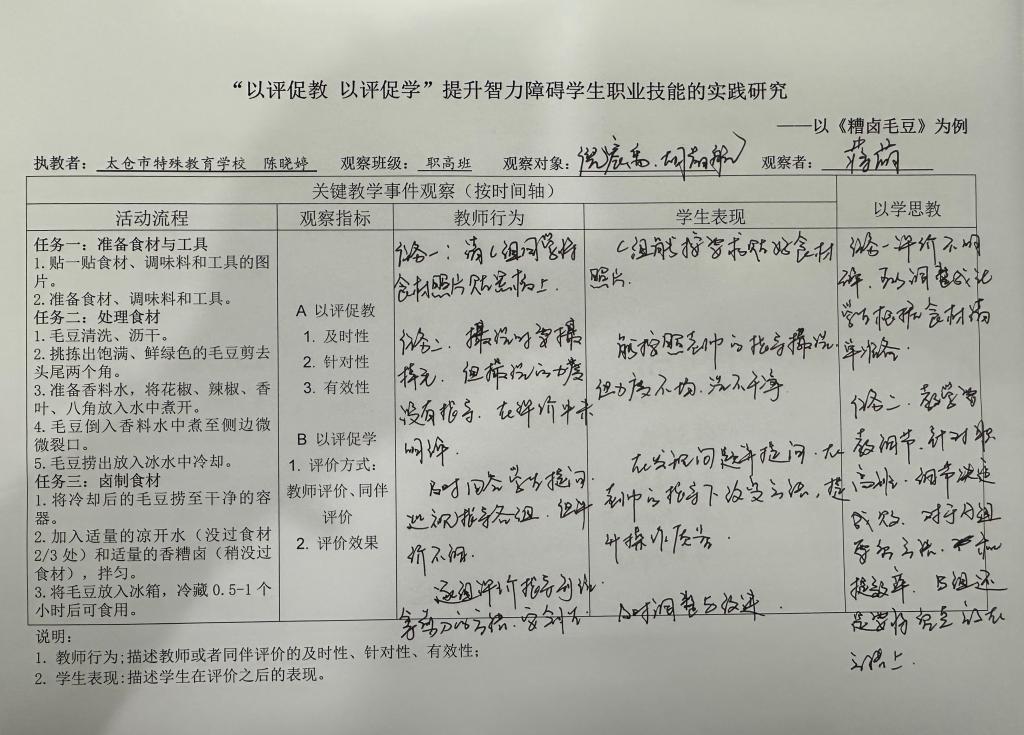 “以评促教 以评促学”提升智力障碍学生职业技能的实践研究
——以《糟卤毛豆》为例
执教者： 太仓市特殊教育学校 陈晓婷 观察班级： 职高班 观察对象： 观察者：
关键教学事件观察（按时间轴）
以学思教
活动流程
观察指标
教师行为
学生表现
任务一：准备食材与工具
1.贴一贴食材、调味料和工具的图
片。
2.准备食材、调味料和工具。
任务二：处理食材
1.毛豆清洗、沥干。
2.挑拣出饱满、鲜绿色的毛豆剪去
头尾两个角。
3.准备香料水，将花椒、辣椒、香
叶、八角放入水中煮开。
4.毛豆倒入香料水中煮至侧边微
微裂口。
5.毛豆捞出放入冰水中冷却。
任务三：卤制食材
1.将冷却后的毛豆捞至干净的容
器。
2.加入适量的凉开水（没过食材
2/3 处）和适量的香糟卤（稍没过
食材），拌匀。
3.将毛豆放入冰箱，冷藏 0.5-1 个
小时后可食用。
A 以评促教
1. 及时性
2. 针对性
3. 有效性
B 以评促学
1. 评价方式：
教师评价、同伴
评价
2. 评价效果
任务一：请C组同学将
食材照片贴黑板上.
任务二.
没有指导. 在评价中未
明确.
及时回答学生提问.
指导各组.
逐组评价指导
C组能按要求贴好食材
照片.
能按照老师的指导搓洗.
但力度不均. 洗不干净
在发现问题并提问. 在
老师的指导下改变方法，提
升操作质量.
及时调整与改进.
任务一评价不明
确.
学生根据食材清
单准备.
任务二. 教学
细节. 针对职
高班. 细节决定
成败. 对于A组
提效率. B组还
是要将重点放在
方法上.
说明：
1. 教师行为;描述教师或者同伴评价的及时性、针对性、有效性；
2. 学生表现:描述学生在评价之后的表现。